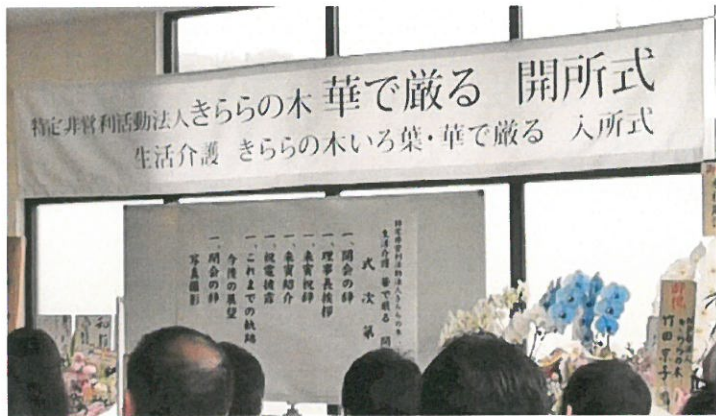 特定非営利活動法人きららの木 華で厳る 開所式
生活介護 きららの木いろ葉・華で厳る 入所式
特定非営利活動法人きららの木
生活介護 華で厳る 開
式次第
一、開会の辞
一、理事長挨拶
一、来賓祝辞
一、来賓紹介
一、祝電披露
一、これまでの軌跡
今後の展望
一、閉会の辞
写真撮影
きららの木
竹田